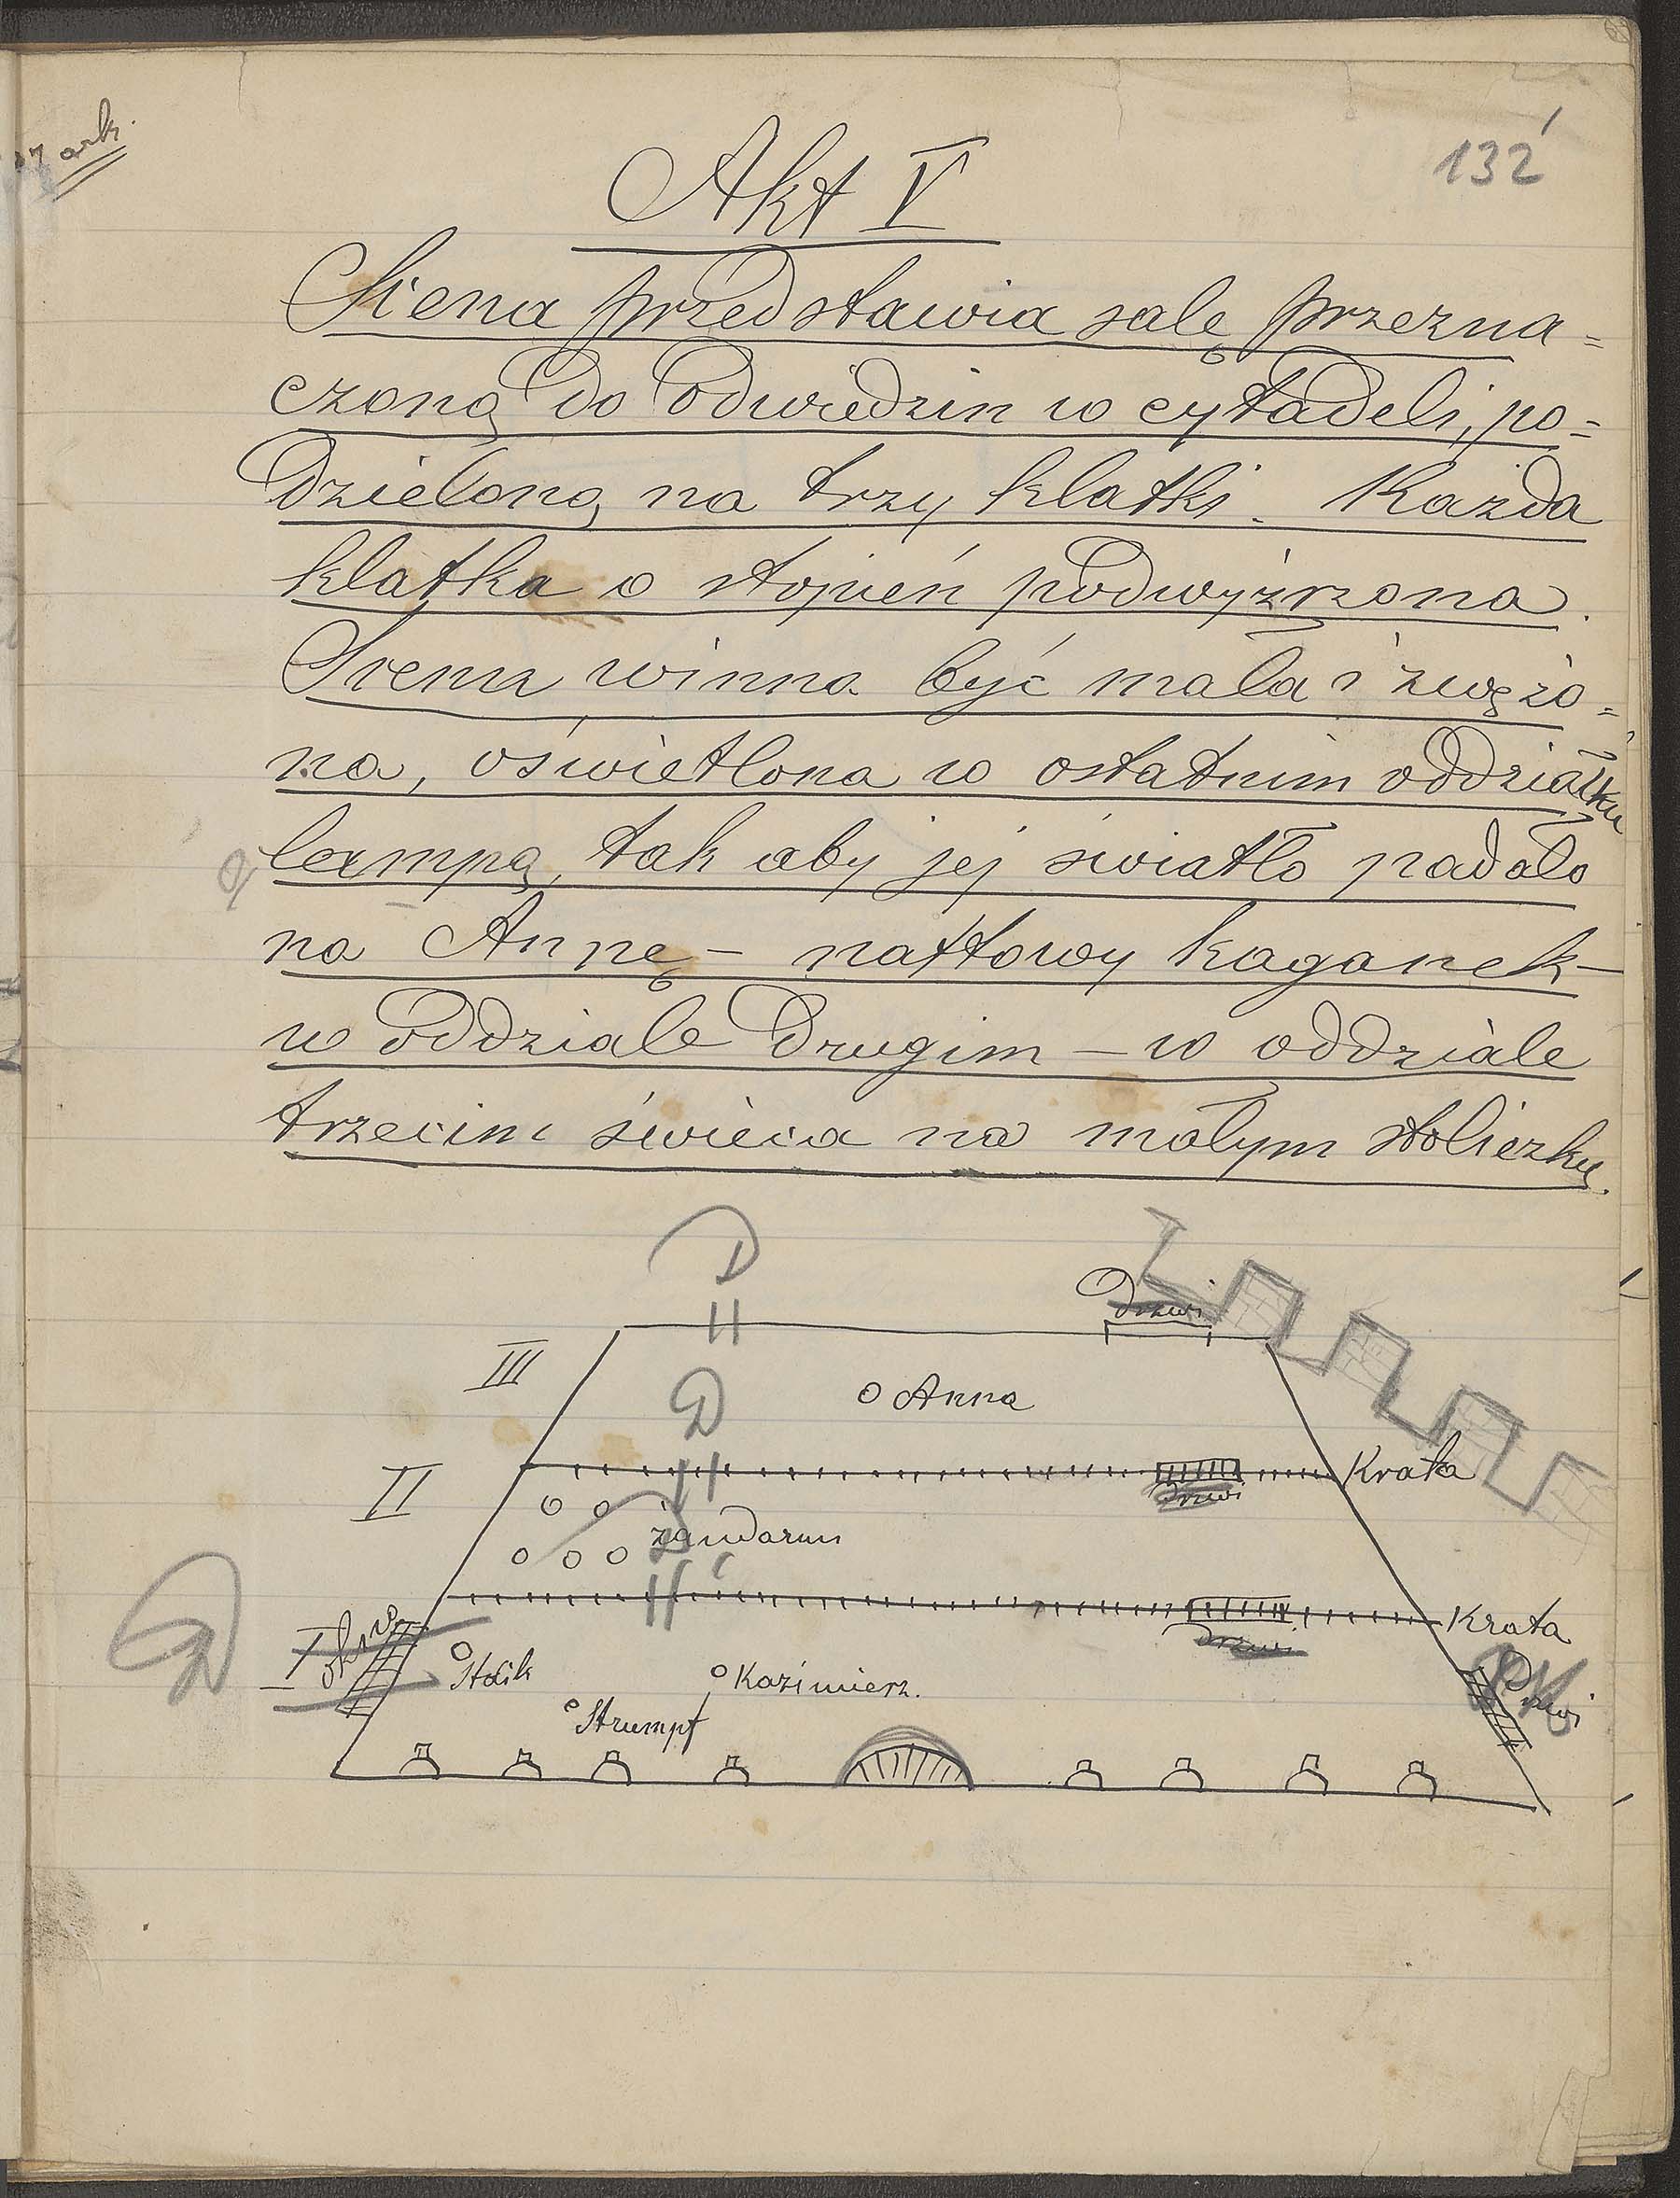 ark.
132
Akt V
Scena przedstawia salę przezna=
czoną do odwiedzin w cytadeli, po=
dzieloną na trzy klatki. Każda
klatka o stopień podwyższona.
Scena winna być mała i zwężo=
na, oświetlona w ostatnim oddziałku
lampą, tak aby jej światło padało
na Annę – naftowy kaganek –
w oddziale drugim – w oddziale
trzecim świeca na małym stoliczku.
D
Drzwi
III
o Anna
D
II
Krata
Drzwi
żandarmi
Krata
Drzwi
D
I
okno
Stóik
Kazimierz.
Strumpf
Drzwi